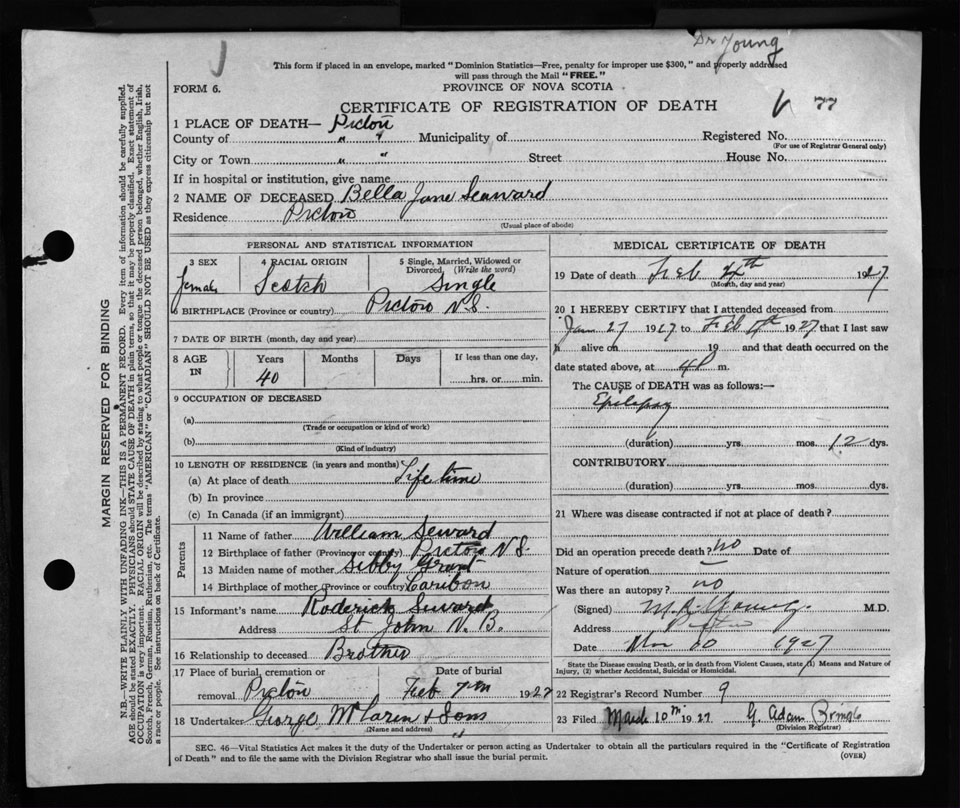 Dr Young
This form if placed in an envelope, marked "Dominion Statistics—Free, penalty for improper use $300," and properly addressed
will pass through the Mail "FREE."
FORM 6.
PROVINCE OF NOVA SCOTIA
CERTIFICATE OF REGISTRATION OF DEATH
77
1 PLACE OF DEATH— Pictou
County of " " Municipality of Registered No.
(For use of Registrar General only)
City or Town " " Street House No.
If in hospital or institution, give name
2 NAME OF DECEASED Bella Jane Seaward
Residence Pictou
(Usual place of abode)
MARGIN RESERVED FOR BINDING
N.B.—WRITE PLAINLY WITH UNFADING INK—THIS IS A PERMANENT RECORD. Every item of information should be carefully supplied.
AGE should be stated EXACTLY. PHYSICIANS should STATE CAUSE OF DEATH in plain terms, so that it may be properly classified. Exact statement of
OCCUPATION is very important. RACIAL ORIGIN will be described by stating to what people or tongue the deceased person belonged, whether English, Irish,
Scotch, French, German, Russian, Ruthenian, etc. The terms "AMERICAN" or "CANADIAN" SHOULD NOT BE USED as they express citizenship but not
a race or people. See instructions on back of Certificate.
PERSONAL AND STATISTICAL INFORMATION
3 SEX 4 RACIAL ORIGIN 5 Single, Married, Widowed or
Divorced (Write the word)
female Scotch Single
6 BIRTHPLACE (Province or country) Pictou N.S.
7 DATE OF BIRTH (month, day and year)
8 AGE IN Years Months Days If less than one day,
40 hrs. or min.
9 OCCUPATION OF DECEASED
(a)
(Trade or occupation or kind of work)
(b)
(Kind of industry)
10 LENGTH OF RESIDENCE (in years and months)
(a) At place of death Life time
(b) In province
(c) In Canada (if an immigrant)
Parents
11 Name of father William Seward
12 Birthplace of father (Province or country) Pictou N.S.
13 Maiden name of mother Sibby Grant
14 Birthplace of mother (Province or country) Caribou
15 Informant's name Roderick Seward
Address St John N.B.
16 Relationship to deceased Brother
17 Place of burial, cremation or Date of burial
removal Pictou Feb 7th 1927
18 Undertaker George McLaren & Sons
(Name and address) "
MEDICAL CERTIFICATE OF DEATH
19 Date of death Feb 4th 1927
(Month, day and year)
20 I HEREBY CERTIFY that I attended deceased from
Jan 27 1927 to Feb 1927 that I last saw
h alive on 19 and that death occurred on the
date stated above, at m.
The CAUSE of DEATH was as follows:—
Epilepsy
(duration) yrs. mos. 12 dys.
CONTRIBUTORY
(duration) yrs. mos. dys.
21 Where was disease contracted if not at place of death?
Did an operation precede death? no Date of
Nature of operation
Was there an autopsy? no
(Signed) Young M.D.
Address Pictou
Date 1927
State the Disease causing Death, or in death from Violent Causes, state (1) Means and Nature of
Injury, (2) whether Accidental, Suicidal or Homicidal.
22 Registrar's Record Number 9
23 Filed March 10th 1927 G. Adam
(Division Registrar)
SEC. 46—Vital Statistics Act makes it the duty of the Undertaker or person acting as Undertaker to obtain all the particulars required in the "Certificate of Registration
of Death" and to file the same with the Division Registrar who shall issue the burial permit.
(OVER)